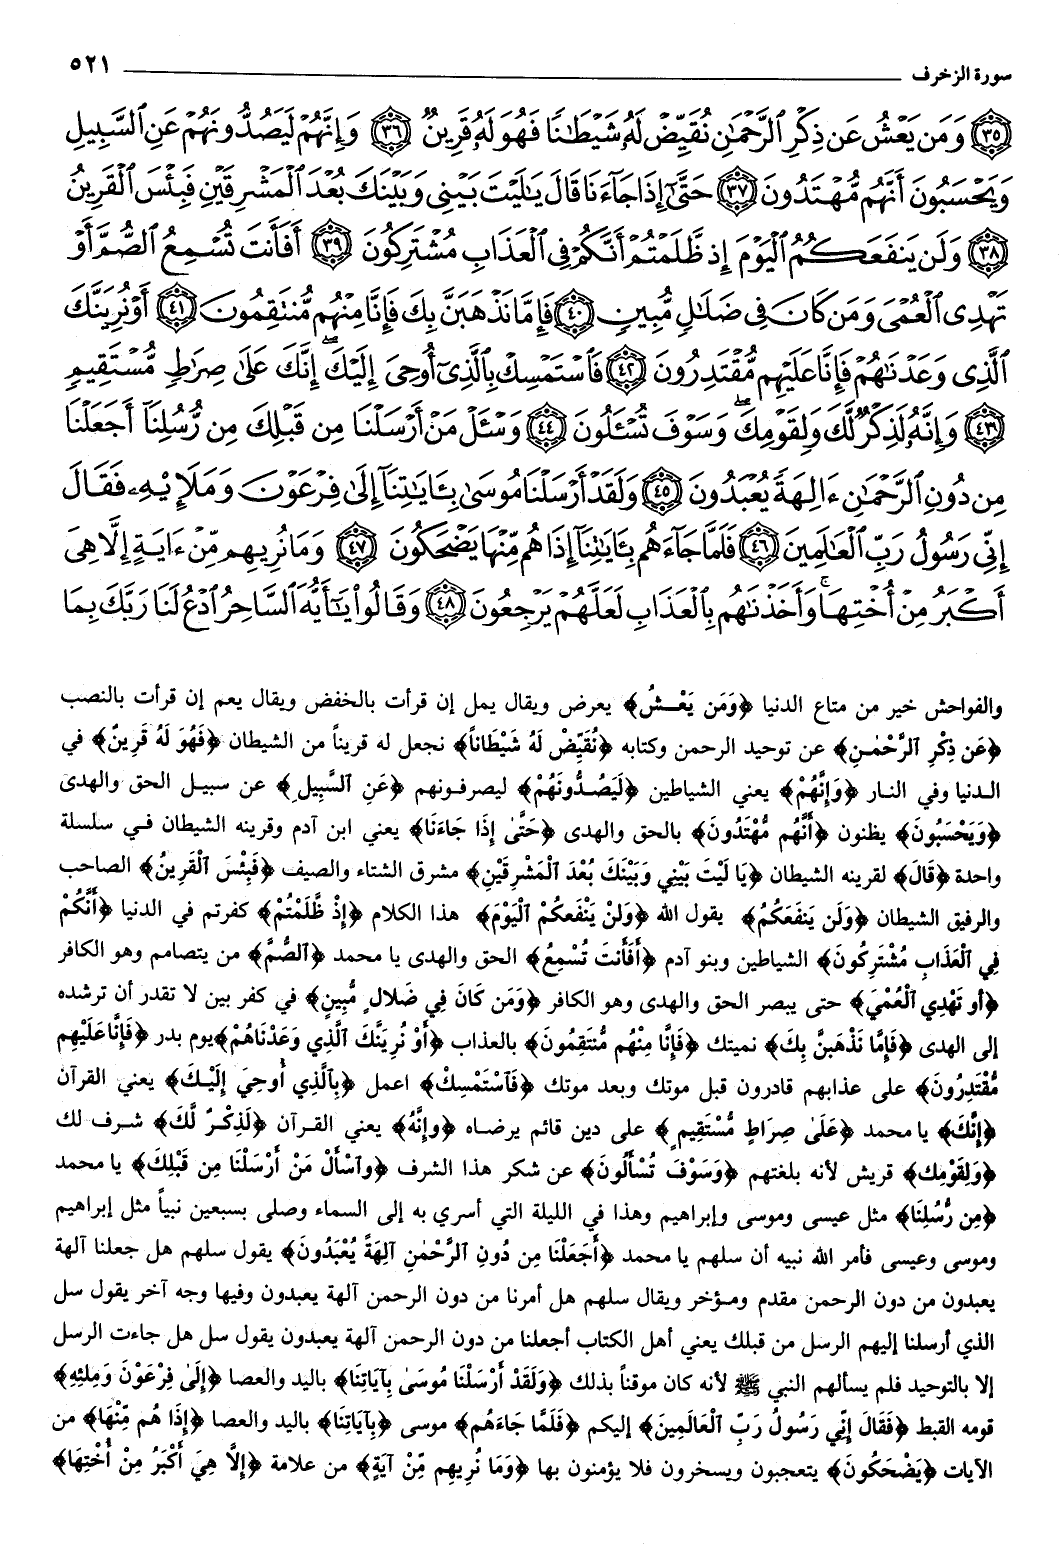 سورة الزخرف ٥٢١
٣٥ وَمَن يَعْشُ عَن ذِكْرِ ٱلرَّحْمَٰنِ نُقَيِّضْ لَهُۥ شَيْطَٰنًا فَهُوَ لَهُۥ قَرِينٌ ٣٦ وَإِنَّهُمْ لَيَصُدُّونَهُمْ عَنِ ٱلسَّبِيلِ
وَيَحْسَبُونَ أَنَّهُم مُّهْتَدُونَ ٣٧ حَتَّىٰٓ إِذَا جَآءَنَا قَالَ يَٰلَيْتَ بَيْنِى وَبَيْنَكَ بُعْدَ ٱلْمَشْرِقَيْنِ فَبِئْسَ ٱلْقَرِينُ
٣٨ وَلَن يَنفَعَكُمُ ٱلْيَوْمَ إِذ ظَّلَمْتُمْ أَنَّكُمْ فِى ٱلْعَذَابِ مُشْتَرِكُونَ ٣٩ أَفَأَنتَ تُسْمِعُ ٱلصُّمَّ أَوْ
تَهْدِى ٱلْعُمْىَ وَمَن كَانَ فِى ضَلَٰلٍ مُّبِينٍ ٤٠ فَإِمَّا نَذْهَبَنَّ بِكَ فَإِنَّا مِنْهُم مُّنتَقِمُونَ ٤١ أَوْ نُرِيَنَّكَ
ٱلَّذِى وَعَدْنَٰهُمْ فَإِنَّا عَلَيْهِم مُّقْتَدِرُونَ ٤٢ فَٱسْتَمْسِكْ بِٱلَّذِىٓ أُوحِىَ إِلَيْكَ ۖ إِنَّكَ عَلَىٰ صِرَٰطٍ مُّسْتَقِيمٍ
٤٣ وَإِنَّهُۥ لَذِكْرٌ لَّكَ وَلِقَوْمِكَ ۖ وَسَوْفَ تُسْـَٔلُونَ ٤٤ وَسْـَٔلْ مَنْ أَرْسَلْنَا مِن قَبْلِكَ مِن رُّسُلِنَآ أَجَعَلْنَا
مِن دُونِ ٱلرَّحْمَٰنِ ءَالِهَةً يُعْبَدُونَ ٤٥ وَلَقَدْ أَرْسَلْنَا مُوسَىٰ بِـَٔايَٰتِنَآ إِلَىٰ فِرْعَوْنَ وَمَلَإِيْهِۦ فَقَالَ
إِنِّى رَسُولُ رَبِّ ٱلْعَٰلَمِينَ ٤٦ فَلَمَّا جَآءَهُم بِـَٔايَٰتِنَآ إِذَا هُم مِّنْهَا يَضْحَكُونَ ٤٧ وَمَا نُرِيهِم مِّنْ ءَايَةٍ إِلَّا هِىَ
أَكْبَرُ مِنْ أُخْتِهَا ۖ وَأَخَذْنَٰهُم بِٱلْعَذَابِ لَعَلَّهُمْ يَرْجِعُونَ ٤٨ وَقَالُوا۟ يَٰٓأَيُّهَ ٱلسَّاحِرُ ٱدْعُ لَنَا رَبَّكَ بِمَا
والفواحش خير من متاع الدنيا ﴿وَمَن يَعْـشُ﴾ يعرض ويقال يمل إن قرأت بالخفض ويقال يعم إن قرأت بالنصب
﴿عَن ذِكْرِ ٱلرَّحْمٰنِ﴾ عن توحيد الرحمن وكتابه ﴿نُقَيِّضْ لَهُ شَيْطَاناً﴾ نجعل له قريناً من الشيطان ﴿فَهُوَ لَهُ قَرِينٌ﴾ في
الدنيا وفي النار ﴿وَإِنَّهُمْ﴾ يعني الشياطين ﴿لَيَصُدُّونَهُمْ﴾ ليصرفونهم ﴿عَنِ ٱلسَّبِيلِ﴾ عن سبيل الحق والهدى
﴿وَيَحْسَبُونَ﴾ يظنون ﴿أَنَّهُم مُّهْتَدُونَ﴾ بالحق والهدى ﴿حَتَّىٰ إِذَا جَاءَنَا﴾ يعني ابن آدم وقرينه الشيطان في سلسلة
واحدة ﴿قَالَ﴾ لقرينه الشيطان ﴿يَا لَيْتَ بَيْنِي وَبَيْنَكَ بُعْدَ ٱلْمَشْرِقَيْنِ﴾ مشرق الشتاء والصيف ﴿فَبِئْسَ ٱلْقَرِينُ﴾ الصاحب
والرفيق الشيطان ﴿وَلَن يَنفَعَكُمُ﴾ يقول الله ﴿وَلَنْ يَنْفَعكُمْ ٱلْيَوْمَ﴾ هذا الكلام ﴿إِذْ ظَّلَمْتُمْ﴾ كفرتم في الدنيا ﴿أَنَّكُمْ
فِي ٱلْعَذَابِ مُشْتَرِكُونَ﴾ الشياطين وبنو آدم ﴿أَفَأَنتَ تُسْمِعُ﴾ الحق والهدى يا محمد ﴿ٱلصُّمَّ﴾ من يتصامم وهو الكافر
﴿أَو تَهْدِي ٱلْعُمْيَ﴾ حتى يبصر الحق والهدى وهو الكافر ﴿وَمَن كَانَ فِي ضَلالٍ مُّبِينٍ﴾ في كفر بين لا تقدر أن ترشده
إلى الهدى ﴿فَإِمَّا نَذْهَبَنَّ بِكَ﴾ نميتك ﴿فَإِنَّا مِنْهُم مُّنتَقِمُونَ﴾ بالعذاب ﴿أَوْ نُرِيَنَّكَ ٱلَّذِي وَعَدْنَاهُمْ﴾ يوم بدر ﴿فَإِنَّا عَلَيْهِم
مُّقْتَدِرُونَ﴾ على عذابهم قادرون قبل موتك وبعد موتك ﴿فَٱسْتَمْسِكْ﴾ اعمل ﴿بِٱلَّذِي أُوحِيَ إِلَيْـكَ﴾ يعني القرآن
﴿إِنَّكَ﴾ يا محمد ﴿عَلَىٰ صِرَاطٍ مُّسْتَقِيمٍ﴾ على دين قائم يرضاه ﴿وإِنَّهُ﴾ يعني القرآن ﴿لَذِكْرٌ لَّكَ﴾ شرف لك
﴿وَلِقَوْمِك﴾ قريش لأنه بلغتهم ﴿وَسَوْفَ تُسْأَلُونَ﴾ عن شكر هذا الشرف ﴿وٱسْأَلْ مَنْ أَرْسَلْنَا مِن قَبْلِكَ﴾ يا محمد
﴿مِن رُّسُلِنَا﴾ مثل عيسى وموسى وإبراهيم وهذا في الليلة التي أسري به إلى السماء وصلى بسبعين نبياً مثل إبراهيم
وموسى وعيسى فأمر الله نبيه أن سلهم يا محمد ﴿أَجَعَلْنَا مِن دُونِ ٱلرَّحْمٰنِ آلِهَةً يُعْبَدُونَ﴾ يقول سلهم هل جعلنا آلهة
يعبدون من دون الرحمن مقدم ومؤخر ويقال سلهم هل أمرنا من دون الرحمن آلهة يعبدون وفيها وجه آخر يقول سل
الذي أرسلنا إليهم الرسل من قبلك يعني أهل الكتاب أجعلنا من دون الرحمن آلهة يعبدون يقول سل هل جاءت الرسل
إلا بالتوحيد فلم يسألهم النبي ﷺ لأنه كان موقناً بذلك ﴿وَلَقَدْ أَرْسَلْنَا مُوسَىٰ بِآيَاتِنَا﴾ باليد والعصا ﴿إِلَىٰ فِرْعَوْنَ وَمَلِئِهِ﴾
قومه القبط ﴿فَقَالَ إِنِّي رَسُولُ رَبِّ ٱلْعَالَمِينَ﴾ إليكم ﴿فَلَمَّا جَاءَهُم﴾ موسى ﴿بِآيَاتِنَا﴾ باليد والعصا ﴿إِذَا هُم مِّنْهَا﴾ من
الآيات ﴿يَضْحَكُونَ﴾ يتعجبون ويسخرون فلا يؤمنون بها ﴿وَمَا نُرِيهِم مِّنْ آيَةٍ﴾ من علامة ﴿إِلَّا هِيَ أَكْبَرُ مِنْ أُخْتِهَا﴾